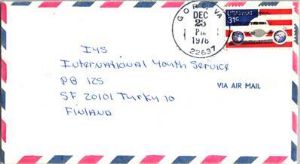 GORE, VA
DEC
23
PM
1976
22637
31c
IYS
International Youth Service
PB 125
SF 20101 Turku 10
Finland
VIA AIR MAIL